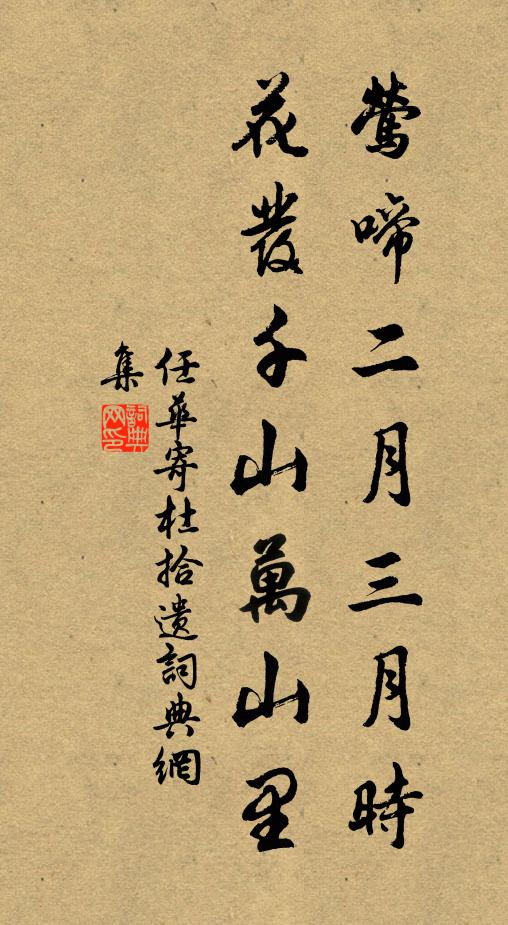 鶯啼二月三月時
花發千山萬山里
任華寄杜拾遺詞典網
集
詞典
网印